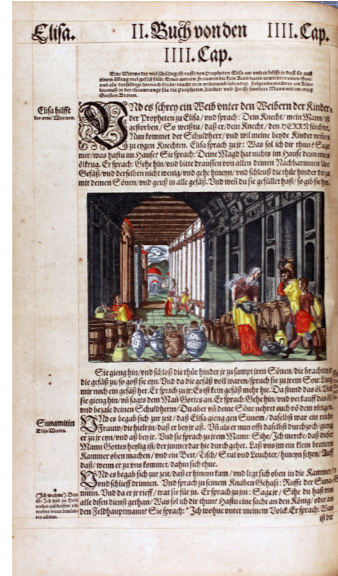 Elisa.
II. Buch von den
IIII. Cap.
IIII. Cap.
Elisa hilfft
der armen Witwen.
VNd es schrey ein Weib vnter den Weibern der Kinder
der Propheten zu Elisa/vnd sprach: Dein Knecht/mein Mann/ist
gestorben/So weistu/daß er/dein Knecht/den HERRN förchtet.
Nun kommet der Schuldherr/vnd wil meine beyde Kinder nemen
zu eygen Knechten. Elisa sprach zu jr: Was sol ich dir thun? Sage
mir/was hastu im Hause? Sie sprach: Deine Magd hat nichts im Hause denn einen
ölkrug. Er sprach: Gehe hin/vnd bitte draussen von allen deinen Nachbarinnen läre
Gefäß/vnd derselben nicht wenig/vnd gehe hineyn/vnd schleuß die thür hinder dir zu
mit deinen Sönen/vnd geuß in alle gefäß. Vnd wenn du sie gefüllet hast/so gib sie hin.
Sie gieng hin/vnd schloß die thür hinder jr zu sampt jren Sönen/die brachten jr
die gefäß zu/so goß sie eyn. Vnd da die gefäß voll waren/sprach sie zu jrem Son: Lang
mir noch ein gefäß her. Er sprach zu jr: Es ist kein gefäß mehr hie. Da stund das öl. Vnd
sie gieng hin/vnd sagts dem Mañ Gottes an. Er sprach: Gehe hin/vnd verkauff das öl/
vnd bezale deinen Schuldherrn/Du aber vñ deine Söne nehret euch võ dem vbrigen.
Sunamitin
VNd es begab sich zur zeit/daß Elisa gieng gen Sunem/daselbst war ein reiche
Frauw/die hielt jn/daß er bey jr aß. Vñ als er nun offt daselbst durchzog/gieng
er zu jr eyn/vnd aß bey jr. Vnd sie sprach zu jrem Mann: Sihe/Ich mercke/daß dieser
Mann Gottes heylig ist/der jmmerdar hie durch gehet. Laß vns jm ein klein brettern
Kammer oben machen/vnd ein Bett/Tisch/Stul vnd Leuchter/hineyn setzen/Auff
daß/wenn er zu vns kommet/dahin sich thue.
VNd es begab sich zur zeit/daß er hinein kam/vnd legt sich oben in die Kammer/
vnd schlieff drinnen. Vnd sprach zu seinem Knaben Gehasi: Ruffe der Sunamitin.
Vnd da er jr rieff/trat sie für jn. Er sprach zu jm: Sage jr/Sihe/du hast vns
alle disen dienst gethan/Was sol ich dir thun? Hastu eine sache an den König/oder an
den Feldhauptmann? Sie sprach: * Ich wohne vnter meinem Volck. Er sprach: Was
ist dir